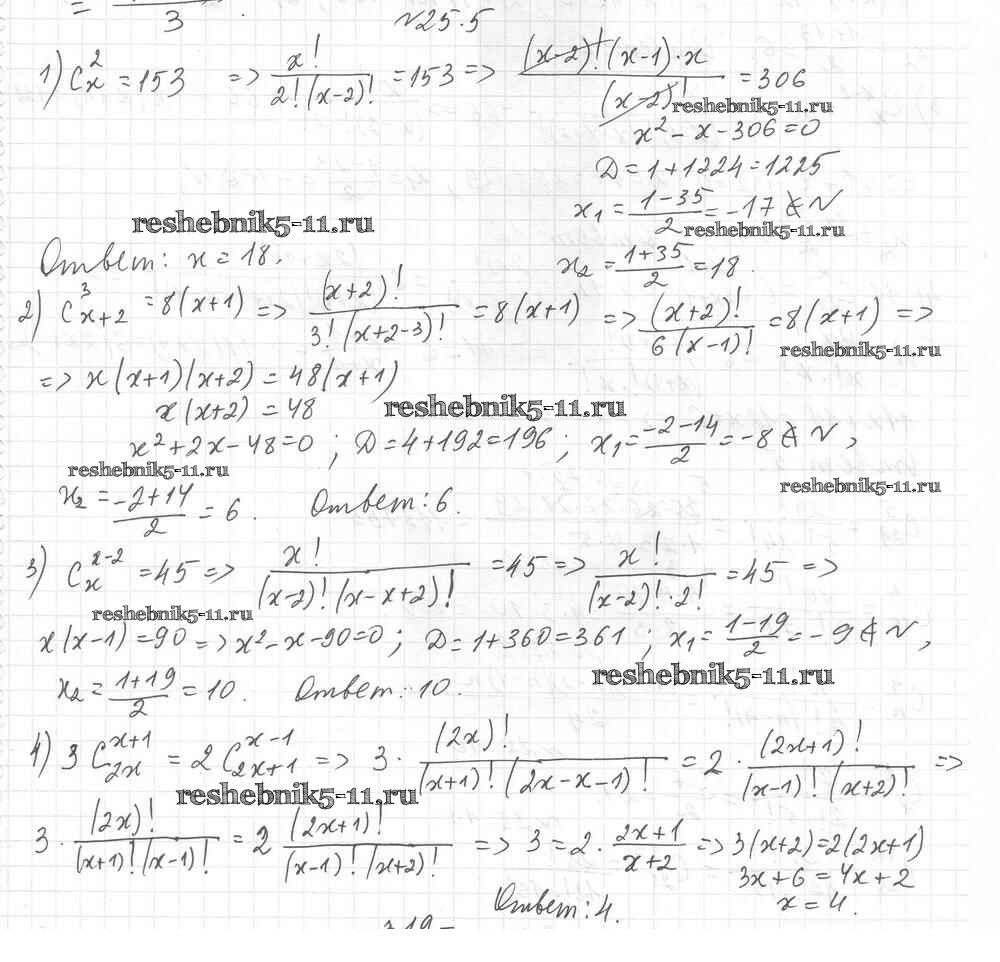 = 3
№25.5
1) C_x^2 = 153 => x! / 2!(x-2)! = 153 => (x-2)!(x-1)·x / (x-2)! = 306
reshebnik5-11.ru
x² - x - 306 = 0
D = 1 + 1224 = 1225
x₁ = (1-35)/2 = -17 ∉ N
reshebnik5-11.ru
reshebnik5-11.ru
x₂ = (1+35)/2 = 18.
Ответ: x = 18.
2) C_{x+2}^3 = 8(x+1) => (x+2)! / 3!(x+2-3)! = 8(x+1) => (x+2)! / 6(x-1)! = 8(x+1) =>
reshebnik5-11.ru
=> x(x+1)(x+2) = 48(x+1)
x(x+2) = 48
reshebnik5-11.ru
x² + 2x - 48 = 0 ; D = 4 + 192 = 196 ; x₁ = (-2-14)/2 = -8 ∉ N ,
reshebnik5-11.ru
reshebnik5-11.ru
x₂ = (-2+14)/2 = 6 . Ответ: 6.
3) C_x^{x-2} = 45 => x! / (x-2)!(x-x+2)! = 45 => x! / (x-2)!·2! = 45 =>
reshebnik5-11.ru
x(x-1) = 90 => x² - x - 90 = 0 ; D = 1 + 360 = 361 ; x₁ = (1-19)/2 = -9 ∉ N ,
reshebnik5-11.ru
x₂ = (1+19)/2 = 10 . Ответ: 10.
4) 3 C_{2x}^{x+1} = 2 C_{2x+1}^{x-1} => 3 · (2x)! / (x+1)!(2x-x-1)! = 2 · (2x+1)! / (x-1)!(x+2)! =>
reshebnik5-11.ru
3 · (2x)! / (x+1)!(x-1)! = 2 (2x+1)! / (x-1)!(x+2)! => 3 = 2 · (2x+1)/(x+2) => 3(x+2) = 2(2x+1)
3x + 6 = 4x + 2
Ответ: 4. x = 4.